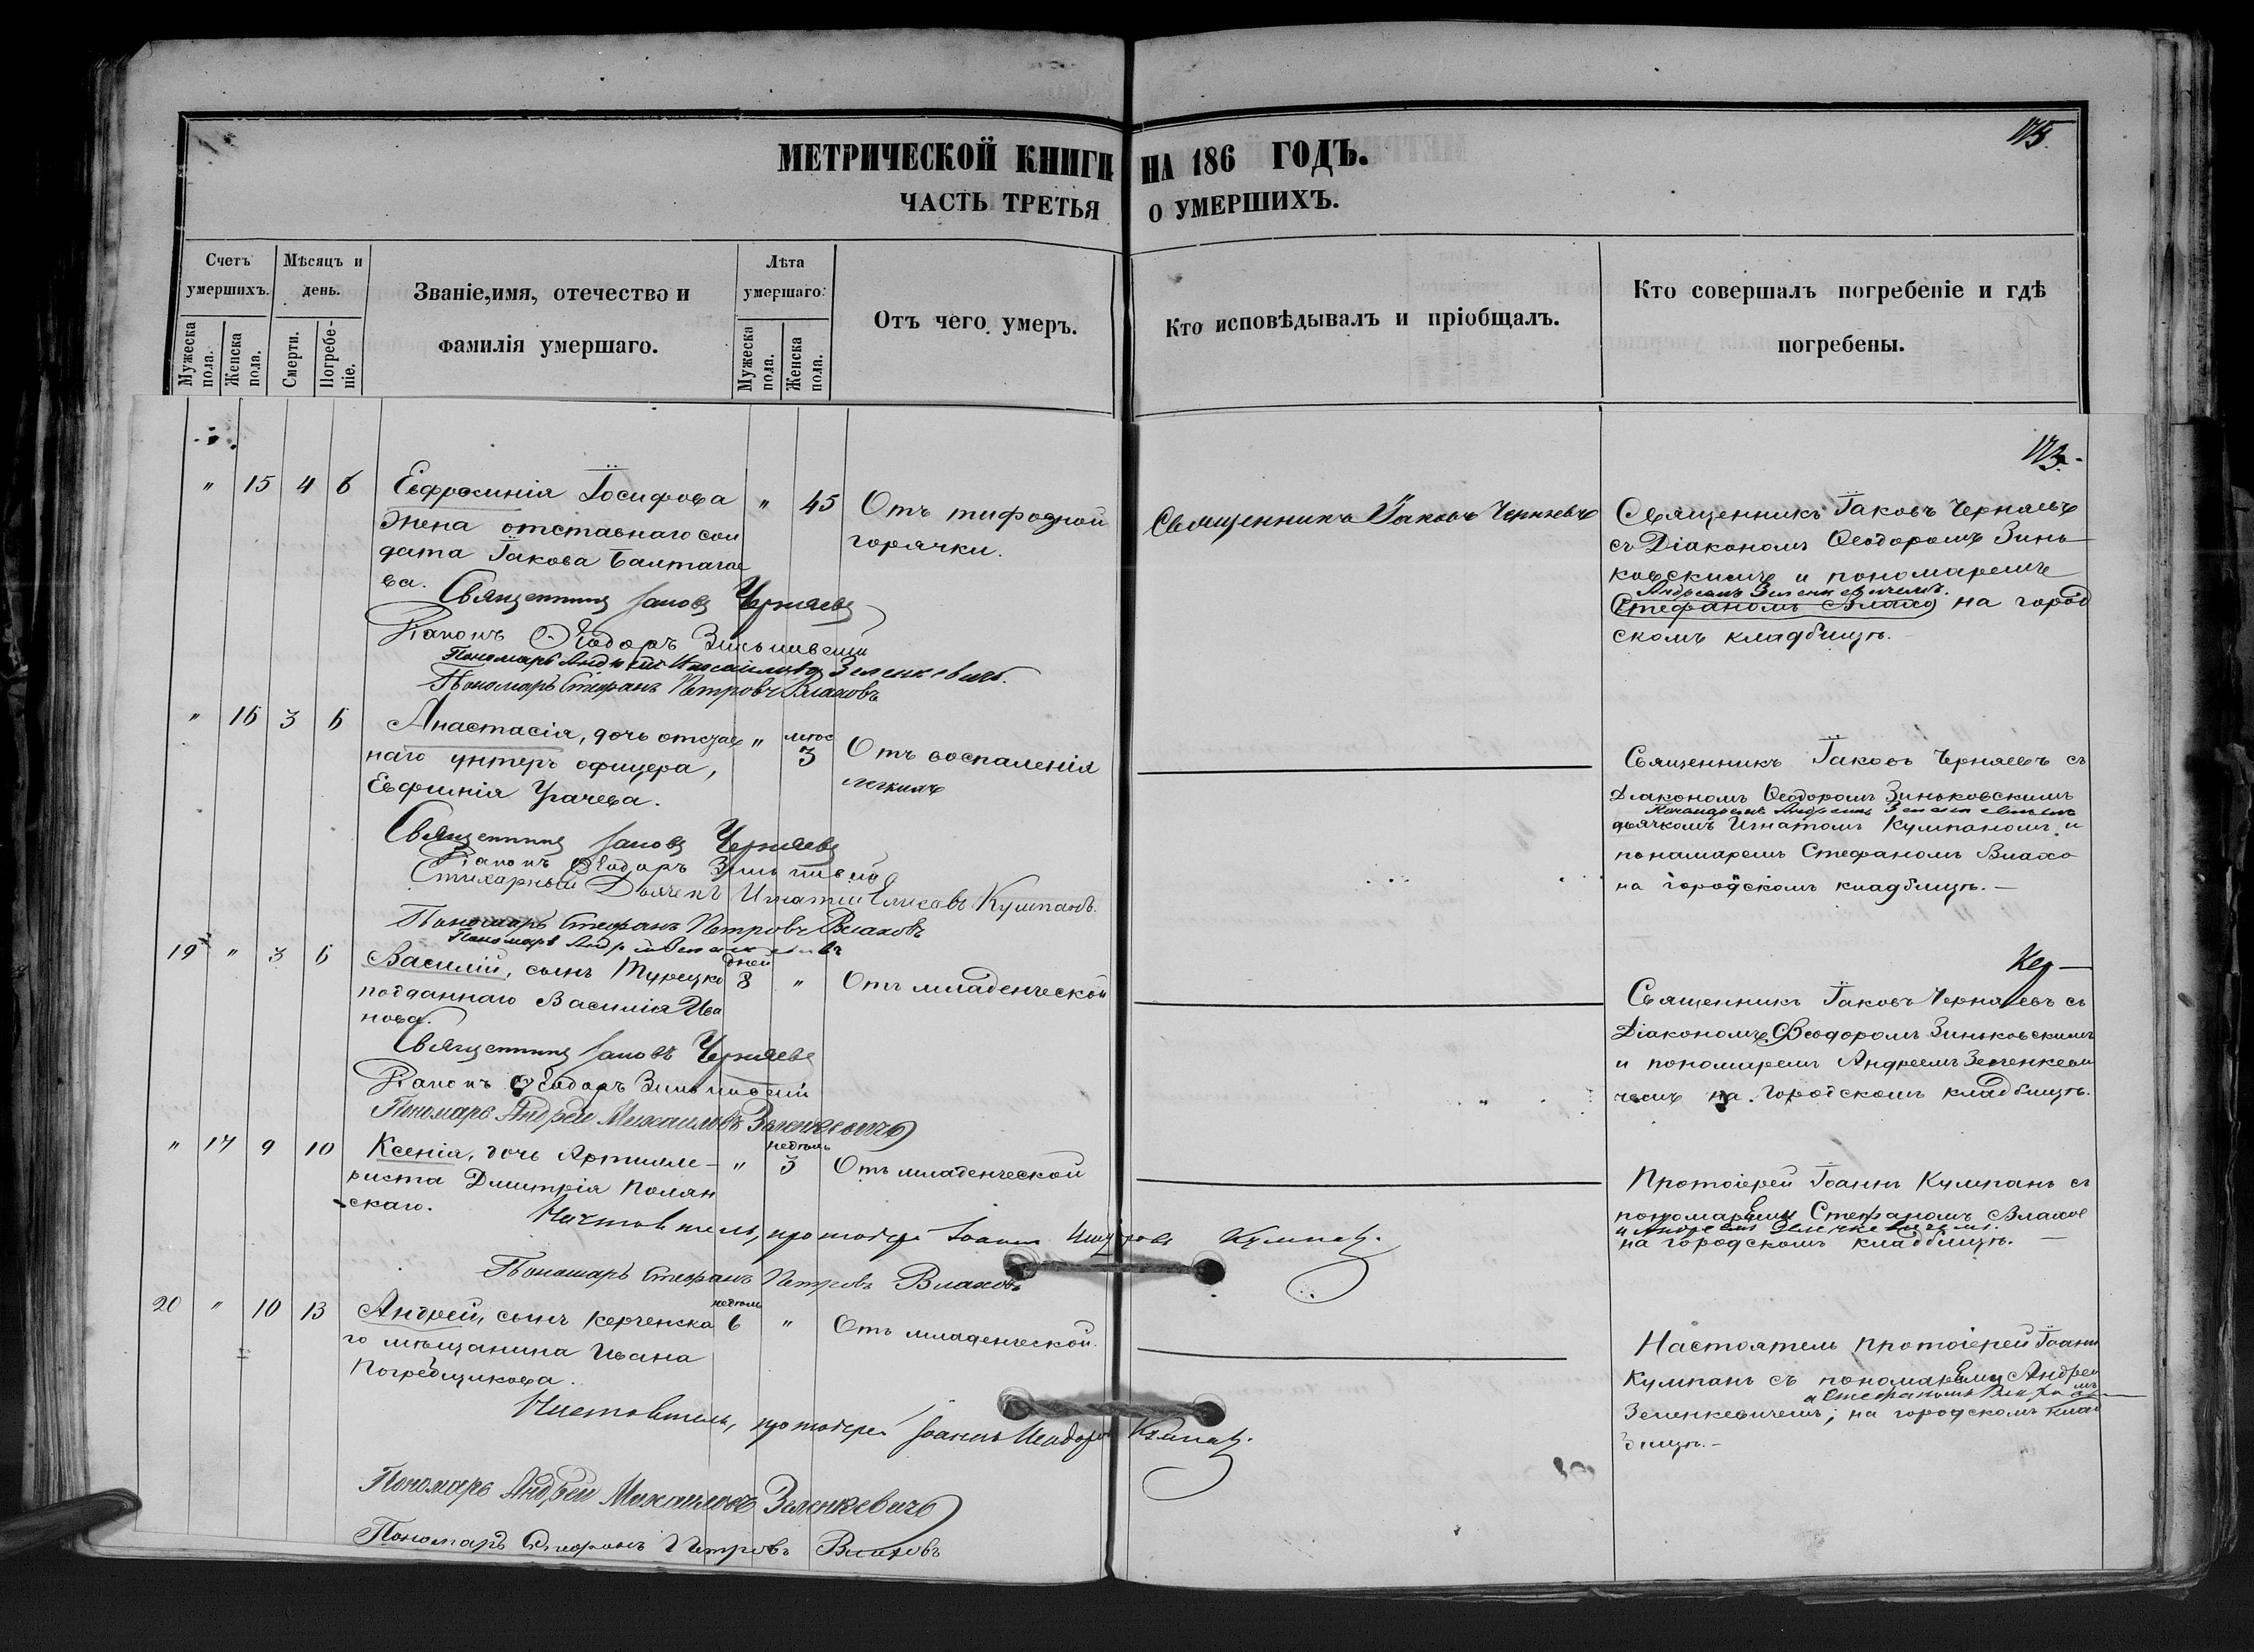 175.
МЕТРИЧЕСКОЙ КНИГИ НА 186 ГОДЪ.
ЧАСТЬ ТРЕТЬЯ О УМЕРШИХЪ.
Счетъ умершихъ.
Мужеска пола.
Женска пола.
Мѣсяцъ и день.
Смерти.
Погребе-ніе.
Званіе, имя, отечество и
фамилія умершаго.
Лѣта умершаго:
Мужеска пола.
Женска пола.
Отъ чего умеръ.
Кто исповѣдывалъ и пріобщалъ.
Кто совершалъ погребеніе и гдѣ
погребены.
" 15 4 6
Евфросинія Іосифова
жена отставнаго сол
дата Іакова Балтагае
ва.
" 45
Отъ тифозной
горячки.
Священникъ Іаковъ Черняевъ
Священникъ Іаковъ Черняевъ
съ Діакономъ Ѳеодоромъ Зинь
ковскимъ и пономаремъ
Андреемъ Зеленкевичемъ.
Стефаномъ Влахо на город
скомъ кладбищѣ.
Священникъ Іаковъ Черняевъ
Діаконъ Ѳеодоръ Зиньковскій
Пономарь Андрей Михаиловъ Зеленкевичъ.
Пономарь Стефанъ Петровъ Влаховъ
" 16 3 6
Анастасія, дочь отстав
наго унтеръ офицера,
Евфимія Грачева.
" мѣс 3
Отъ воспаленія
легкихъ
Священникъ Іаковъ Черняевъ съ
Діакономъ Ѳеодоромъ Зиньковскимъ
Пономаремъ Андреемъ Зеленкевичемъ
дьячкомъ Игнатомъ Кумпаномъ и
понамаремъ Стефаномъ Влахо
на городскомъ кладбищѣ.—
Священникъ Іаковъ Черняевъ
Діаконъ Ѳеодоръ Зиньковскій
Стихарный Дьячекъ Игнатій Кумпанъ.
Пономарь Стефанъ Петровъ Влаховъ
Пономарь Андрей Зеленкевичъ
19 " 3 6
Василій, сынъ Турецко
подданнаго Василія Ива
нова.
дней 8 "
Отъ младенческой
Священникъ Іаковъ Черняевъ съ
Діакономъ Ѳеодоромъ Зиньковскимъ
и пономаремъ Андреемъ Зеленкеви
чемъ на городскомъ кладбищѣ.
Священникъ Іаковъ Черняевъ
Діаконъ Ѳеодоръ Зиньковскій
Пономарь Андрей Михаиловъ Зеленкевичъ
" 17 9 10
Ксенія, дочь Артилле-
риста Дмитрія Полян
скаго.
" недѣль 3
Отъ младенческой
Протоіерей Іоаннъ Кумпанъ съ
пономарями Стефаномъ Влахо
и Андреемъ Зеленкевичемъ.
на городскомъ кладбищѣ.—
Настоятель, протоіерей Іоаннъ Кумпанъ.
Пономарь Стефанъ Петровъ Влаховъ
20 " 10 13
Андрей, сынъ Керченска
го мѣщанина Ивана
Погребщикова.
недѣль 6 "
Отъ младенческой.
Настоятель протоіерей Іоаннъ
Кумпанъ съ пономарями Андреемъ
и Стефаномъ Влахо
Зеленкевичемъ, на городскомъ клад
бищѣ.—
Настоятель, протоіерей Іоаннъ Кумпанъ.
Пономарь Андрей Михаиловъ Зеленкевичъ
Пономарь Стефанъ Петровъ Влаховъ